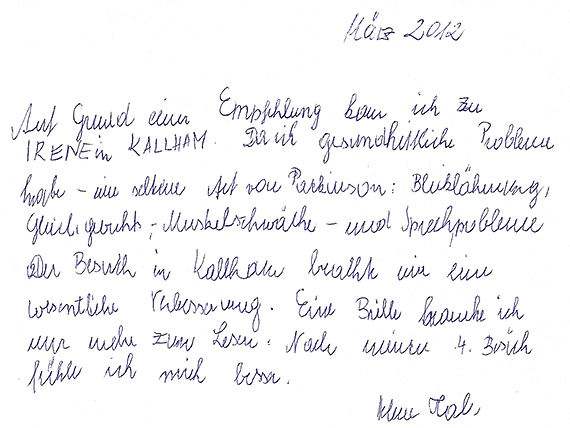 März 2012
Auf Grund einer Empfehlung kam ich zu
IRENE in KALLHAM. Da ich gesundheitliche Probleme
habe - eine seltene Art von Parkinson: Blicklähmung,
Gleichgewichts-, Muskelschwäche - und Sprechprobleme
Der Besuch in Kallham brachte mir eine
wesentliche Verbesserung. Eine Brille brauche ich
nur mehr zum Lesen. Nach meinem 4. Besuch
fühle ich mich besser.